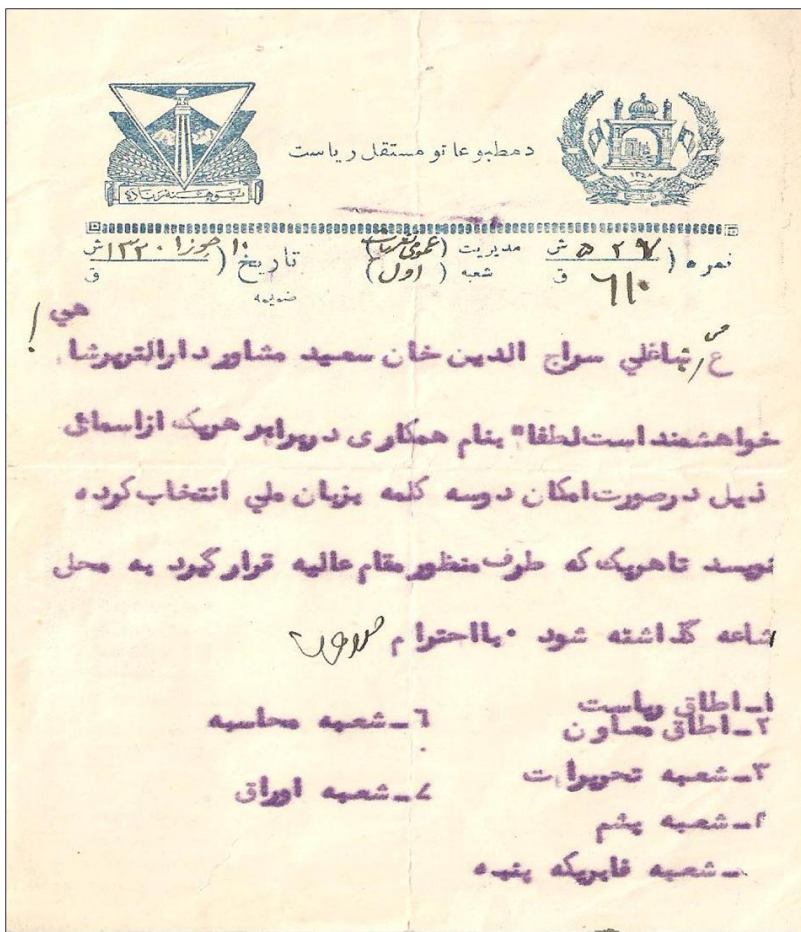 د مطبوعاتو مستقل ریاست
۱۳۴۸
نمره ( ش ق ۶۱۰
مدیریت (عمومی
شعبه (اول)
تاریخ ( ۱۰ جوزا ۱۳۲۰ ش ق
ضمیمه
هي
ع، ص ښاغلي سراج الدین خان سعید مشاور دارالتربرشا
خواهشمند است لطفا" بنام همکاری دربرابر هریک ازاسمائ
ذیل درصورت امکان دوسه کلمه بزبان ملي انتخاب کرده
نویسد تاهریک که طرف منظور مقام عالیه قرار گیرد به محل
شاعه گذاشته شود ۰ بااحترام
۱ـ اطاق ریاست
۲ـ اطاق معاون
۳ـ شعبه تحریرات
ـ شعبه پشم
ـ شعبه فابریکه پنبه
٦ـ شعبه محاسبه
۷ـ شعبه اوراق